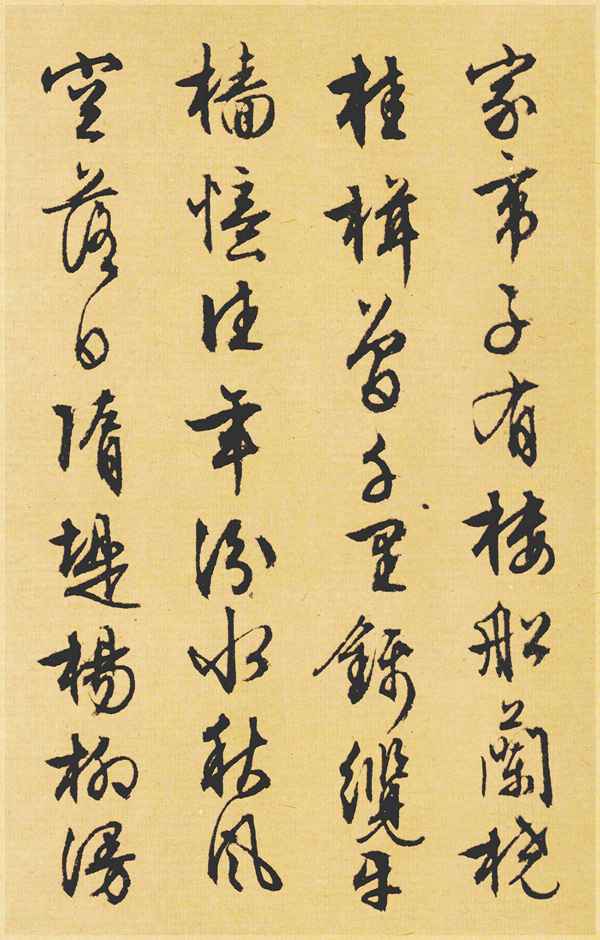 家帝子有樓船蘭橈
桂楫曾千里錦纜牙
檣憶往年汾水秋風
空落日隋堤楊柳漫